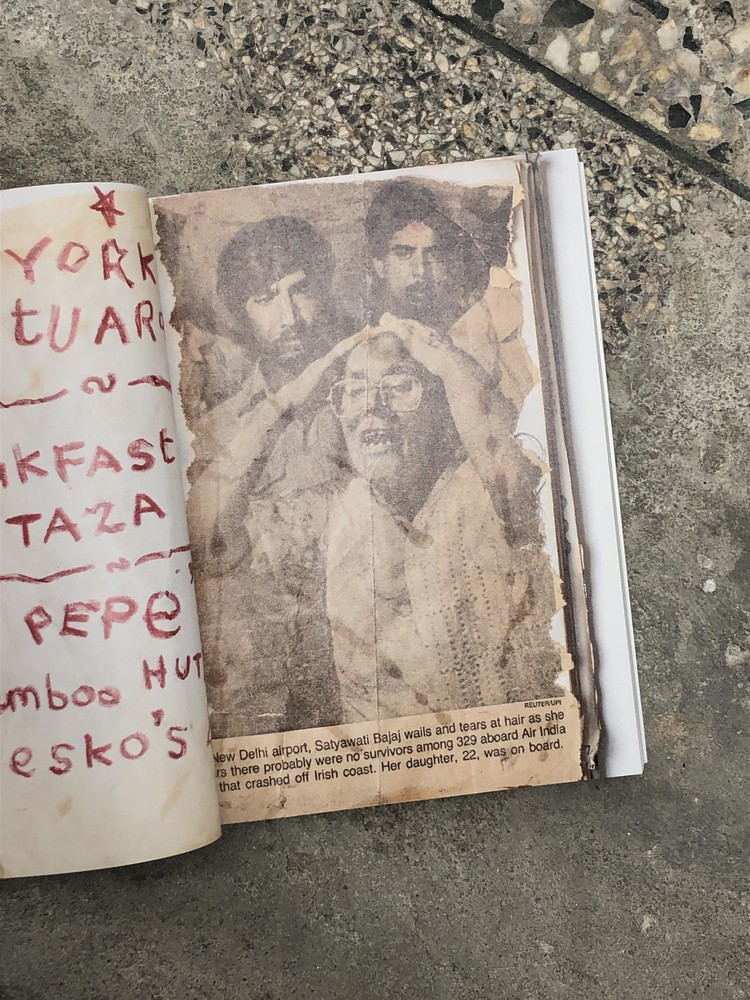 YORK
tUAR
KFASt
TAZA
PEPe
mboo HUT
esko's
REUTER/UPI
New Delhi airport, Satyawati Bajaj wails and tears at hair as she
rs there probably were no survivors among 329 aboard Air India
that crashed off Irish coast. Her daughter, 22, was on board.